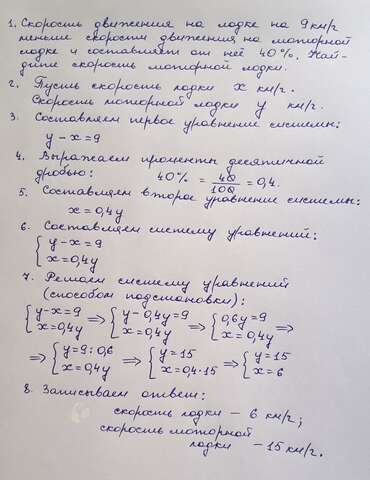 1. Скорость движения на лодке на 9 км/г
меньше скорости движения на моторной
лодке и составляет от неё 40%. Най-
дите скорость моторной лодки.
2. Пусть скорость лодки x км/г.
Скорость моторной лодки y км/г.
3. Составляем первое уравнение системы:
y - x = 9
4. Выражаем проценты десятичной
дробью: 40% = 40/100 = 0,4.
5. Составляем второе уравнение системы:
x = 0,4y
6. Составляем систему уравнений:
{ y - x = 9
x = 0,4y
7. Решаем систему уравнений
(способом подстановки):
{ y - x = 9 ⇒ { y - 0,4y = 9 ⇒ { 0,6y = 9 ⇒
x = 0,4y x = 0,4y x = 0,4y
⇒ { y = 9 : 0,6 ⇒ { y = 15 ⇒ { y = 15
x = 0,4y x = 0,4·15 x = 6
8. Записываем ответ:
скорость лодки – 6 км/г;
скорость моторной
лодки – 15 км/г.